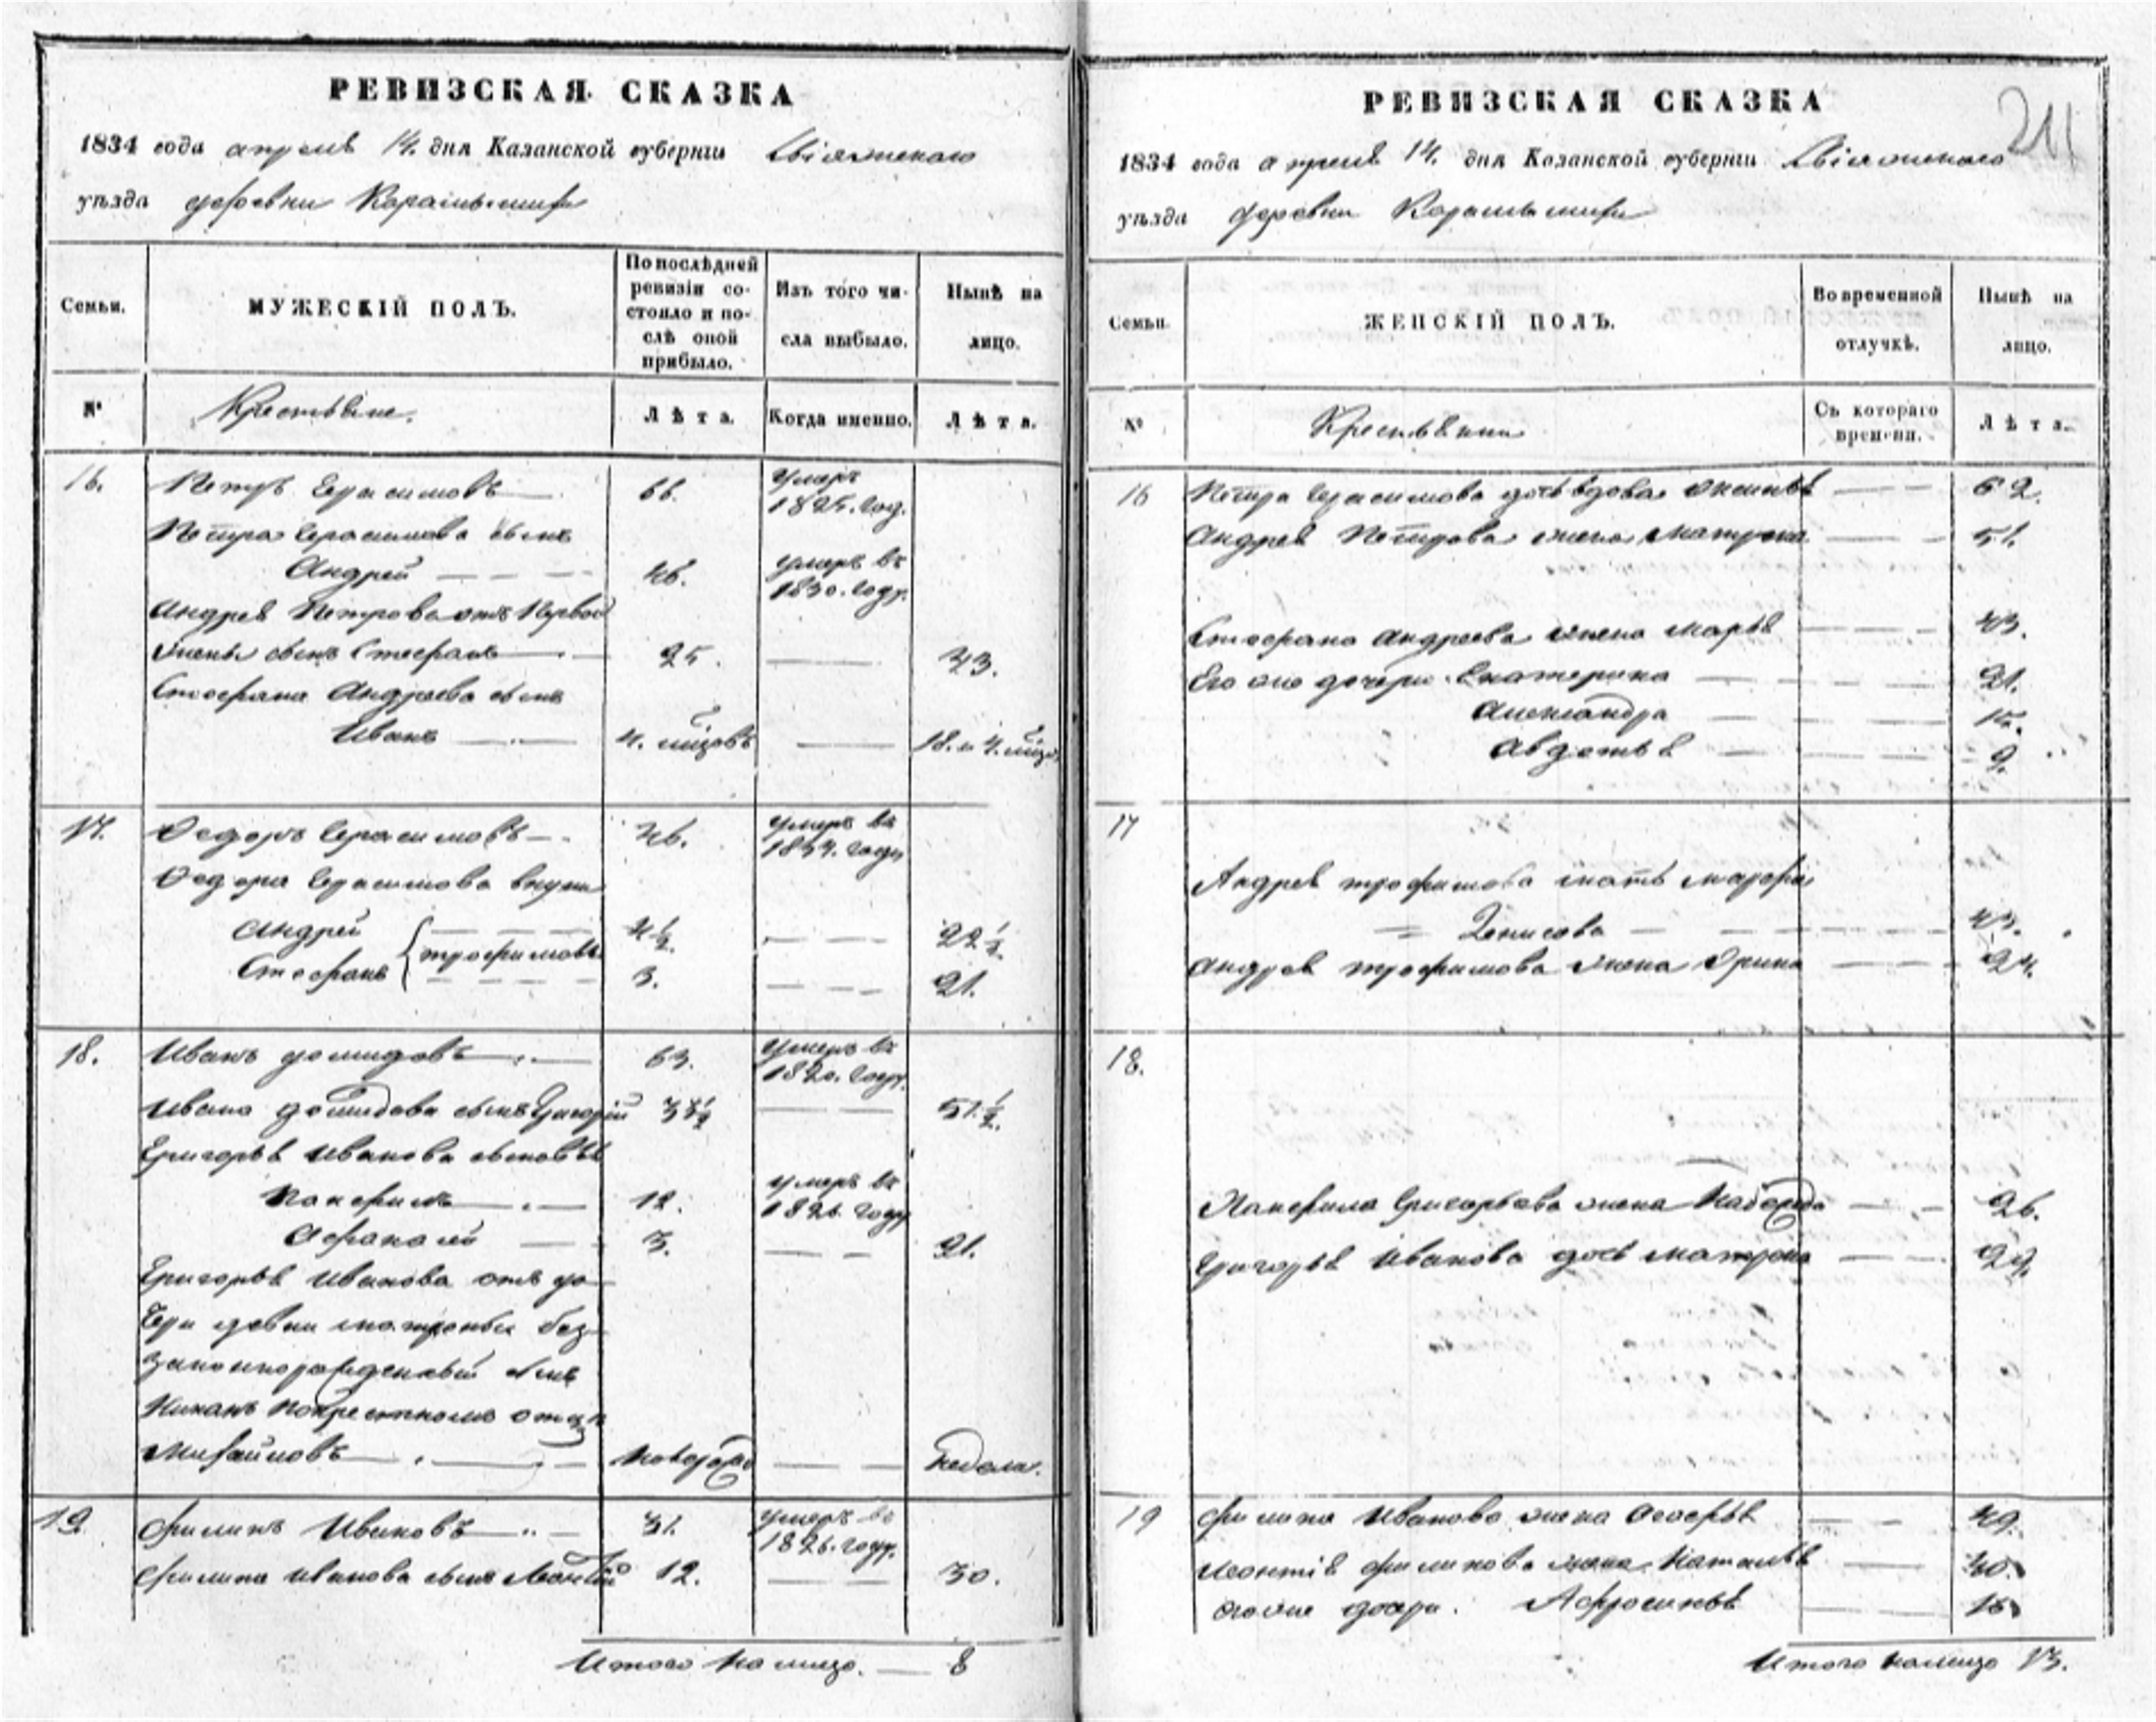 РЕВИЗСКАЯ СКАЗКА
1834 года апреля 14. дня Казанской губернии Свіяжскаго
уѣзда деревни
Семьи.
МУЖЕСКІЙ ПОЛЪ.
По послѣдней ревизіи состояло и послѣ оной прибыло.
Изъ того числа выбыло.
Нынѣ на лицо.
№
Крестьяне.
Лѣта.
Когда именно.
Лѣта.
16. Петръ Герасимовъ 66. умеръ
Петра Герасимова сынъ
Андрей 46. умеръ въ 1830. году.
Андрея Петрова отъ первой
жены сынъ Стефанъ 25. 43.
Стефана Андреева сынъ
Иванъ 4. мѣцовъ 18. и 4. мѣцо
17. Федоръ Герасимовъ 46. умеръ въ году
Федора Герасимова внуки
Андрей 4½. 22½.
Трофимовы
Стефанъ 3. 21.
18. Иванъ Демидовъ 63. умеръ въ 1820. году.
Ивана Демидова сынъ Григорій 33½ 51½.
Григорья Иванова сыновья
Панфилъ 12. умеръ въ 1826. году
Афанасей 3. 21.
Григорья Иванова отъ до-
чери девки Матрены без-
законнорожденный сынъ
покрестному отцу
Михайловъ новорожд недели.
19. Филипъ Ивановъ 31. умеръ въ 1826. году.
Филипа Иванова сынъ Леонтій 12. 30.
Итого на лицо. 8
РЕВИЗСКАЯ СКАЗКА
211
1834 года апреля 14. дня Казанской губерніи Свіяжскаго
уѣзда деревни
Семьи.
ЖЕНСКІЙ ПОЛЪ.
Во временной отлучкѣ.
Нынѣ на лицо.
№
Крестьянки
Съ котораго времени.
Лѣта.
16 Петра Герасимова вдова 62.
Андрея Петрова жена Матрена 51.
Стефана Андреева жена Марья 43.
Его же дочери Екатерина 21.
Александра 15.
Авдотья 9.
17
Андрея Трофимова мать Марфа
Денисова 43.
Андрея Трофимова жена Ирина 24.
18.
Панфила Григорьева жена Надежда 26.
Григорья Иванова дочь Матрена 29.
19 Филипа Иванова жена 49.
Леонтія Филипова жена Наталья 30.
Его же дочери. Афросинья
Итого налицо 13.